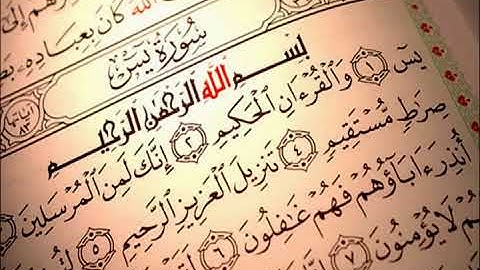 إِلَىٰ
ٱللَّهَ كَانَ بِعِبَادِهِۦ
سُورَةُ يسٓ
ءَايَاتُهَا ٨٣
بِسْمِ ٱللَّهِ ٱلرَّحْمَٰنِ ٱلرَّحِيمِ
يسٓ ١ وَٱلْقُرْءَانِ ٱلْحَكِيمِ ٢ إِنَّكَ لَمِنَ ٱلْمُرْسَلِينَ
صِرَٰطٍ مُّسْتَقِيمٍ ٤ تَنزِيلَ ٱلْعَزِيزِ ٱلرَّحِيمِ ٥
أُنذِرَ ءَابَآؤُهُمْ فَهُمْ غَٰفِلُونَ ٦
لَا يُؤْمِنُونَ ٧